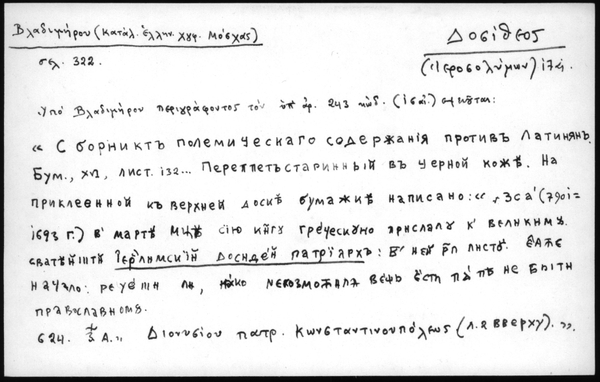 Βλαδιμήρου (Κατάλ. Ἑλλην. χγφ. Μόσχας)
Δοσίθεος
σελ. 322.
(Ἱεροσολύμων)
Ὑπὸ Βλαδιμήρου περιγράφοντος τὸν ὑπ' ἀρ. 243 κώδ. σημειοῦται:
« Сборникъ полемическаго содержанія противъ Латинянъ.
Бум., XVII, лист. 132... Переплетъ старинный въ черной кожѣ. На
приклеенной къ верхней доскѣ бумажкѣ написано: « ҂Зса' (7201 =
1693 г.) в' мартѣ мцѣ сію книгу греческую прислалъ к' великимъ
святѣйшій Іерлимскій Досиѳей патріархъ: в' ней листъ.
начало: невозможная вещь есть папѣ не быти
православномъ.
624. Διονυσίου πατρ. Κωνσταντινουπόλεως (л. 2 вверху). ».